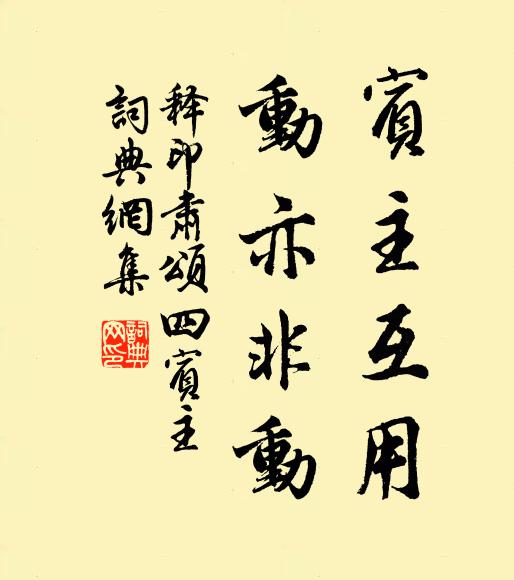 賓主互用
動亦非動
释印肅頌四賓主
詞典網集
詞典
网印